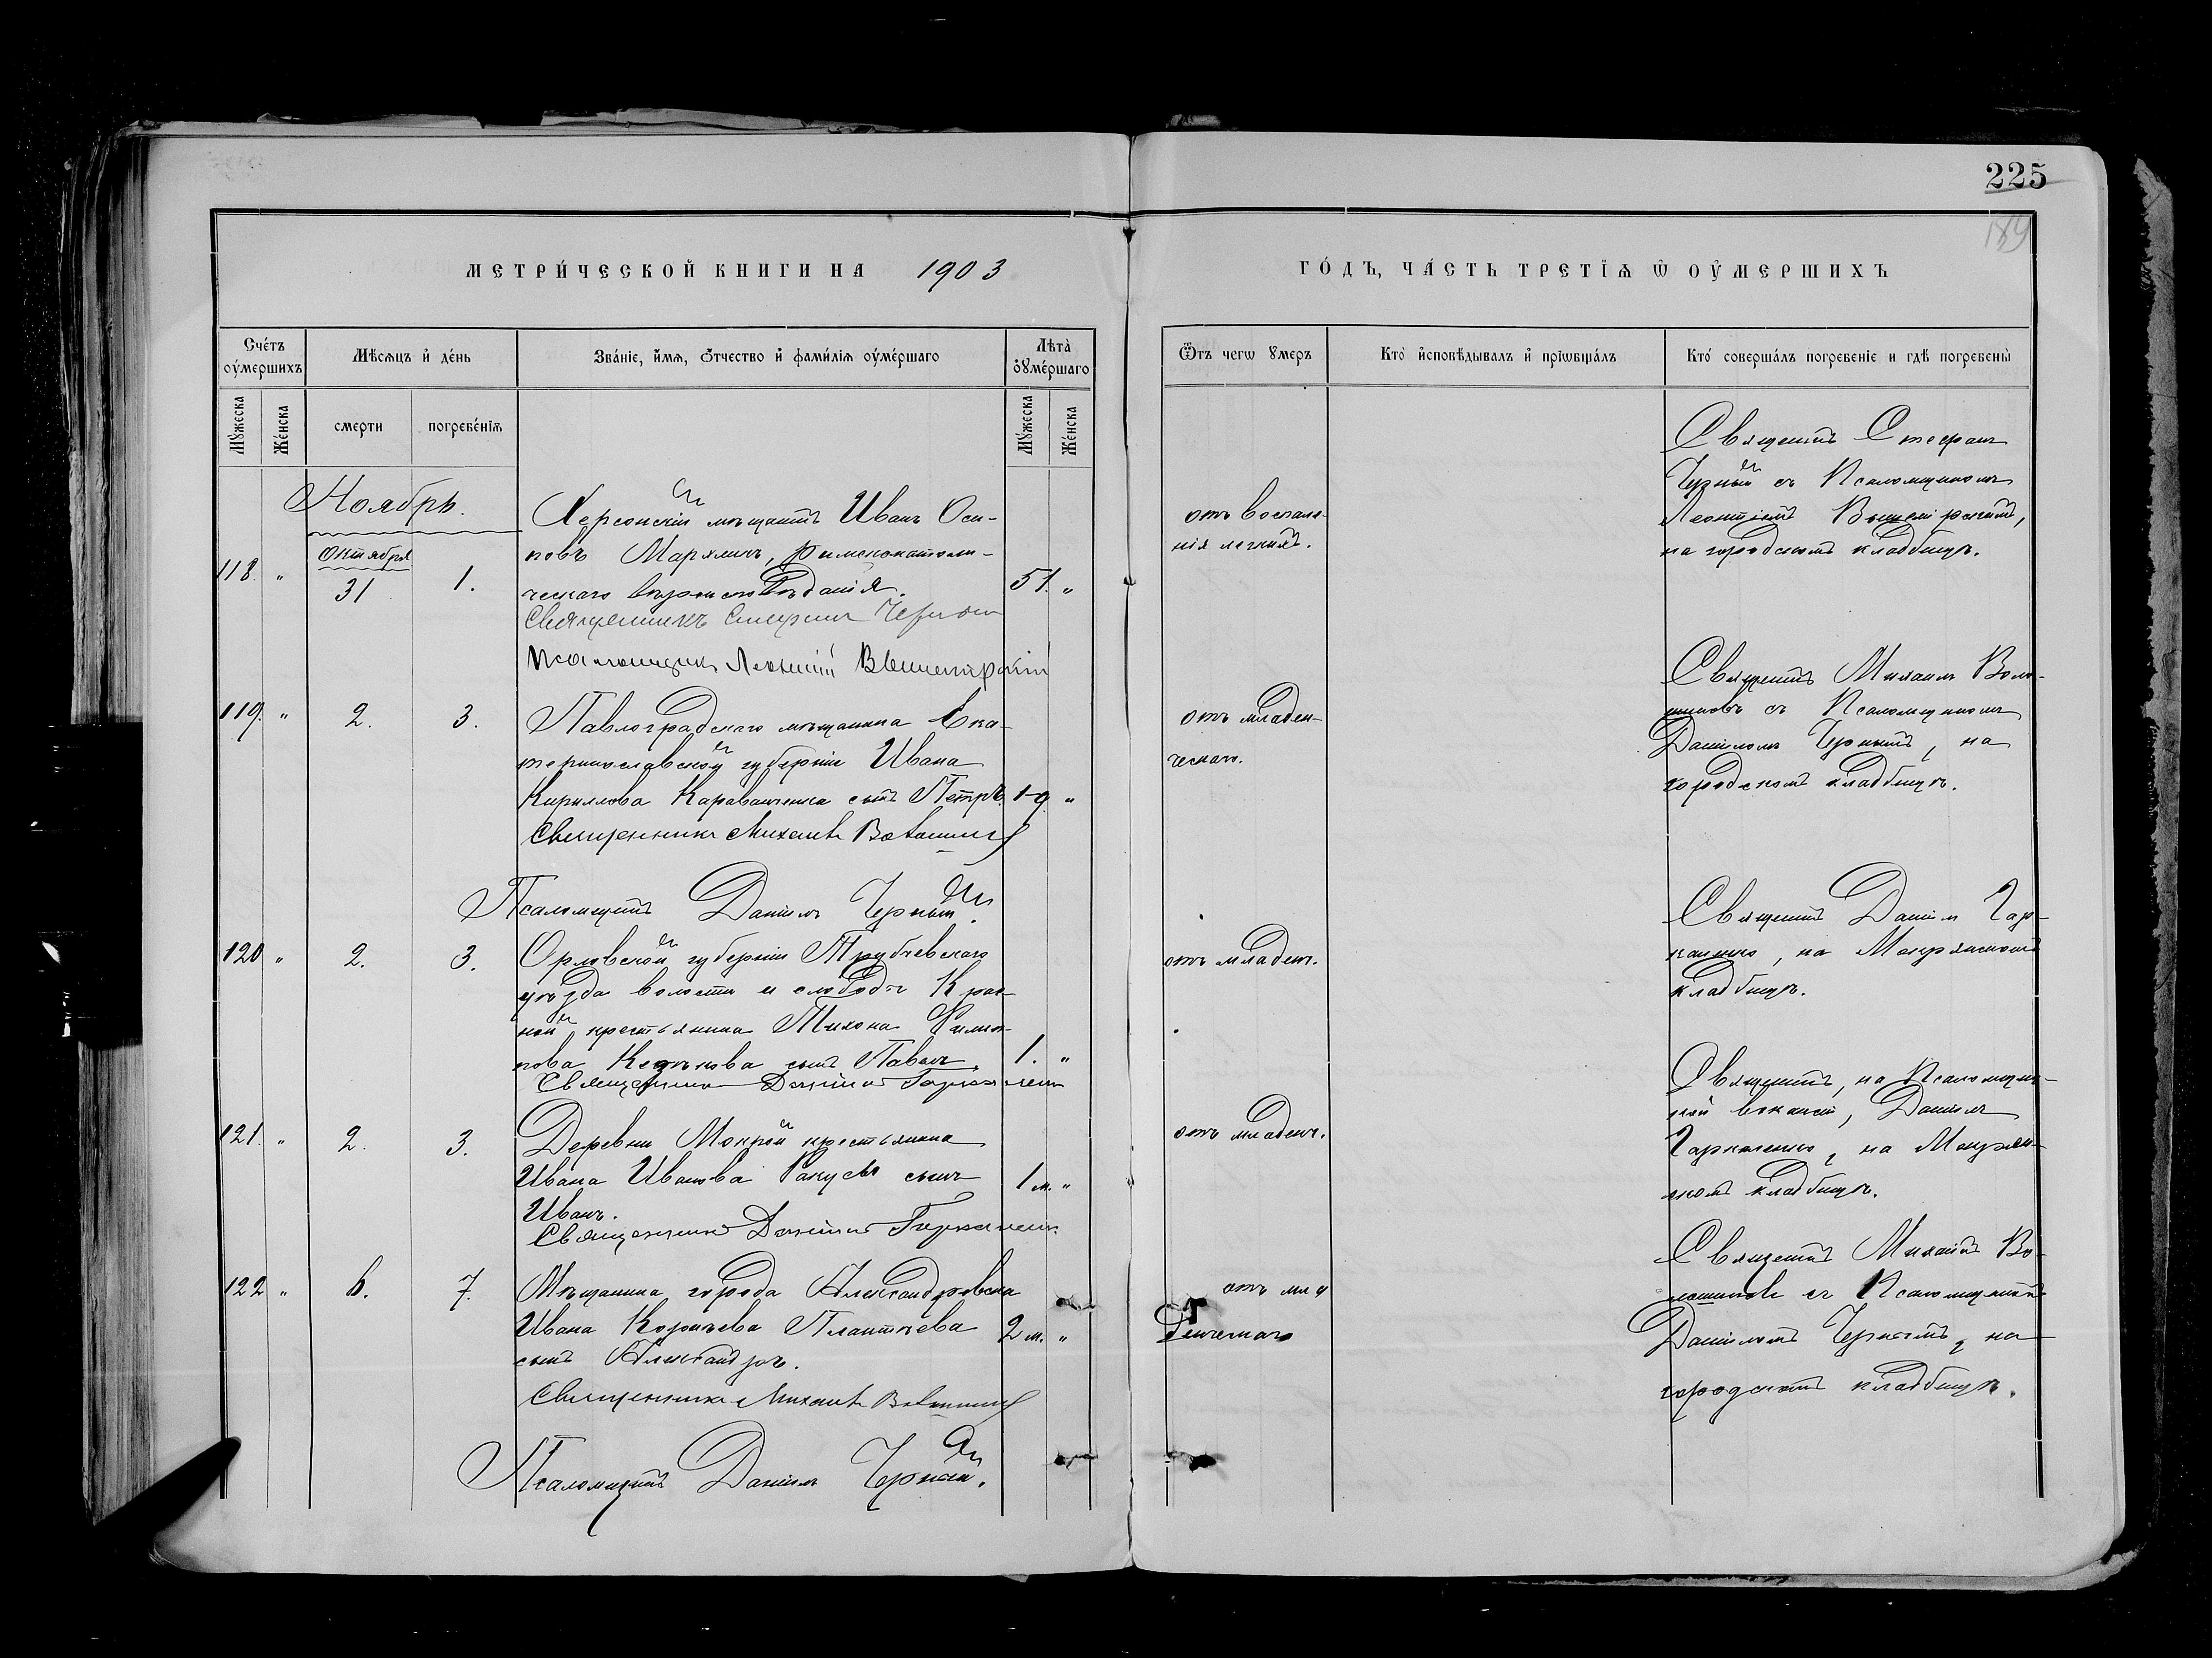 225
189
МЕТРИ́ЧЕСКОЙ КНИГИ НА 1903
ГО́ДЪ, ЧА́СТЬ ТРЕТІѦ Ѡ҆ ОУ҆МЕРШИХЪ
Сче́тъ оу҆ме́ршихъ
Мѣсѧцъ и҆ де́нь
Зва́ніе, и҆́мѧ, ѻ҆́тчество и҆ фами́лія оу҆ме́ршаго
Лѣта̀ оу҆ме́ршаго
Ѿъ чегѡ ꙋмеръ
Кто̀ и҆сповѣ́дывалъ и҆ пріѡбща́лъ
Кто́ соверша́лъ погребе́ніе и гдѣ̀ погребены̀
Мꙋ́жеска
Же́нска
смерти
погребе́ніѧ
Мꙋ́жеска
Же́нска
Ноябрь.
118. " Октября 31 1.
Херсонскій мѣщанинъ Иванъ Оси-
повъ , Римскокатоли-
ческаго вѣроисповѣданія. 51. "
Священникъ Стефанъ Черный
Псаломщикъ Леонтій Вышемірскій
отъ воспале-
нія легкихъ.
Священникъ Стефанъ
Черный съ Псаломщикомъ
Леонтіемъ Вышемірскимъ,
на городскомъ кладбищѣ.
119. " 2. 3.
Павлоградскаго мѣщанина Ека-
теринославской губерніи Ивана
Кириллова Караванченка сынъ Петръ. "
Священникъ Михаилъ Волошинов
Псаломщикъ Даніилъ Черный.
отъ младен-
ческаго.
Священникъ Михаилъ Воло-
шиновъ съ Псаломщикомъ
Даніиломъ Чернымъ, на
городскомъ кладбищѣ.
120 " 2. 3.
Орловской губерніи Трубчевскаго
уѣзда волости и слободы
ной крестьянина Тихона Филип-
пова сынъ Павелъ. 1. "
Священникъ Даніилъ Гаркаленко
отъ младен.
Священникъ Даніилъ Гар-
каленко, на Мокрянскомъ
кладбищѣ.
121. " 2. 3.
Деревни Мокрой крестьянина
Ивана Иванова сынъ 1 м. "
Иванъ.
Священникъ Даніилъ Гаркаленко
отъ младенч.
Священникъ, на Псаломщиц-
кой вакансіи, Даніилъ
Гаркаленко, на Мокрян-
скомъ кладбищѣ.
122 " 6. 7.
Мѣщанина города Александровска
Ивана Корнѣева Плантѣева 2 м. "
сынъ Александръ.
Священникъ Михаилъ Волошинов
Псаломщикъ Даніилъ Черный.
отъ мла
денческаго
Священникъ Михаилъ Во-
лошиновъ съ Псаломщикомъ
Даніиломъ Чернымъ, на
городскомъ кладбищѣ.